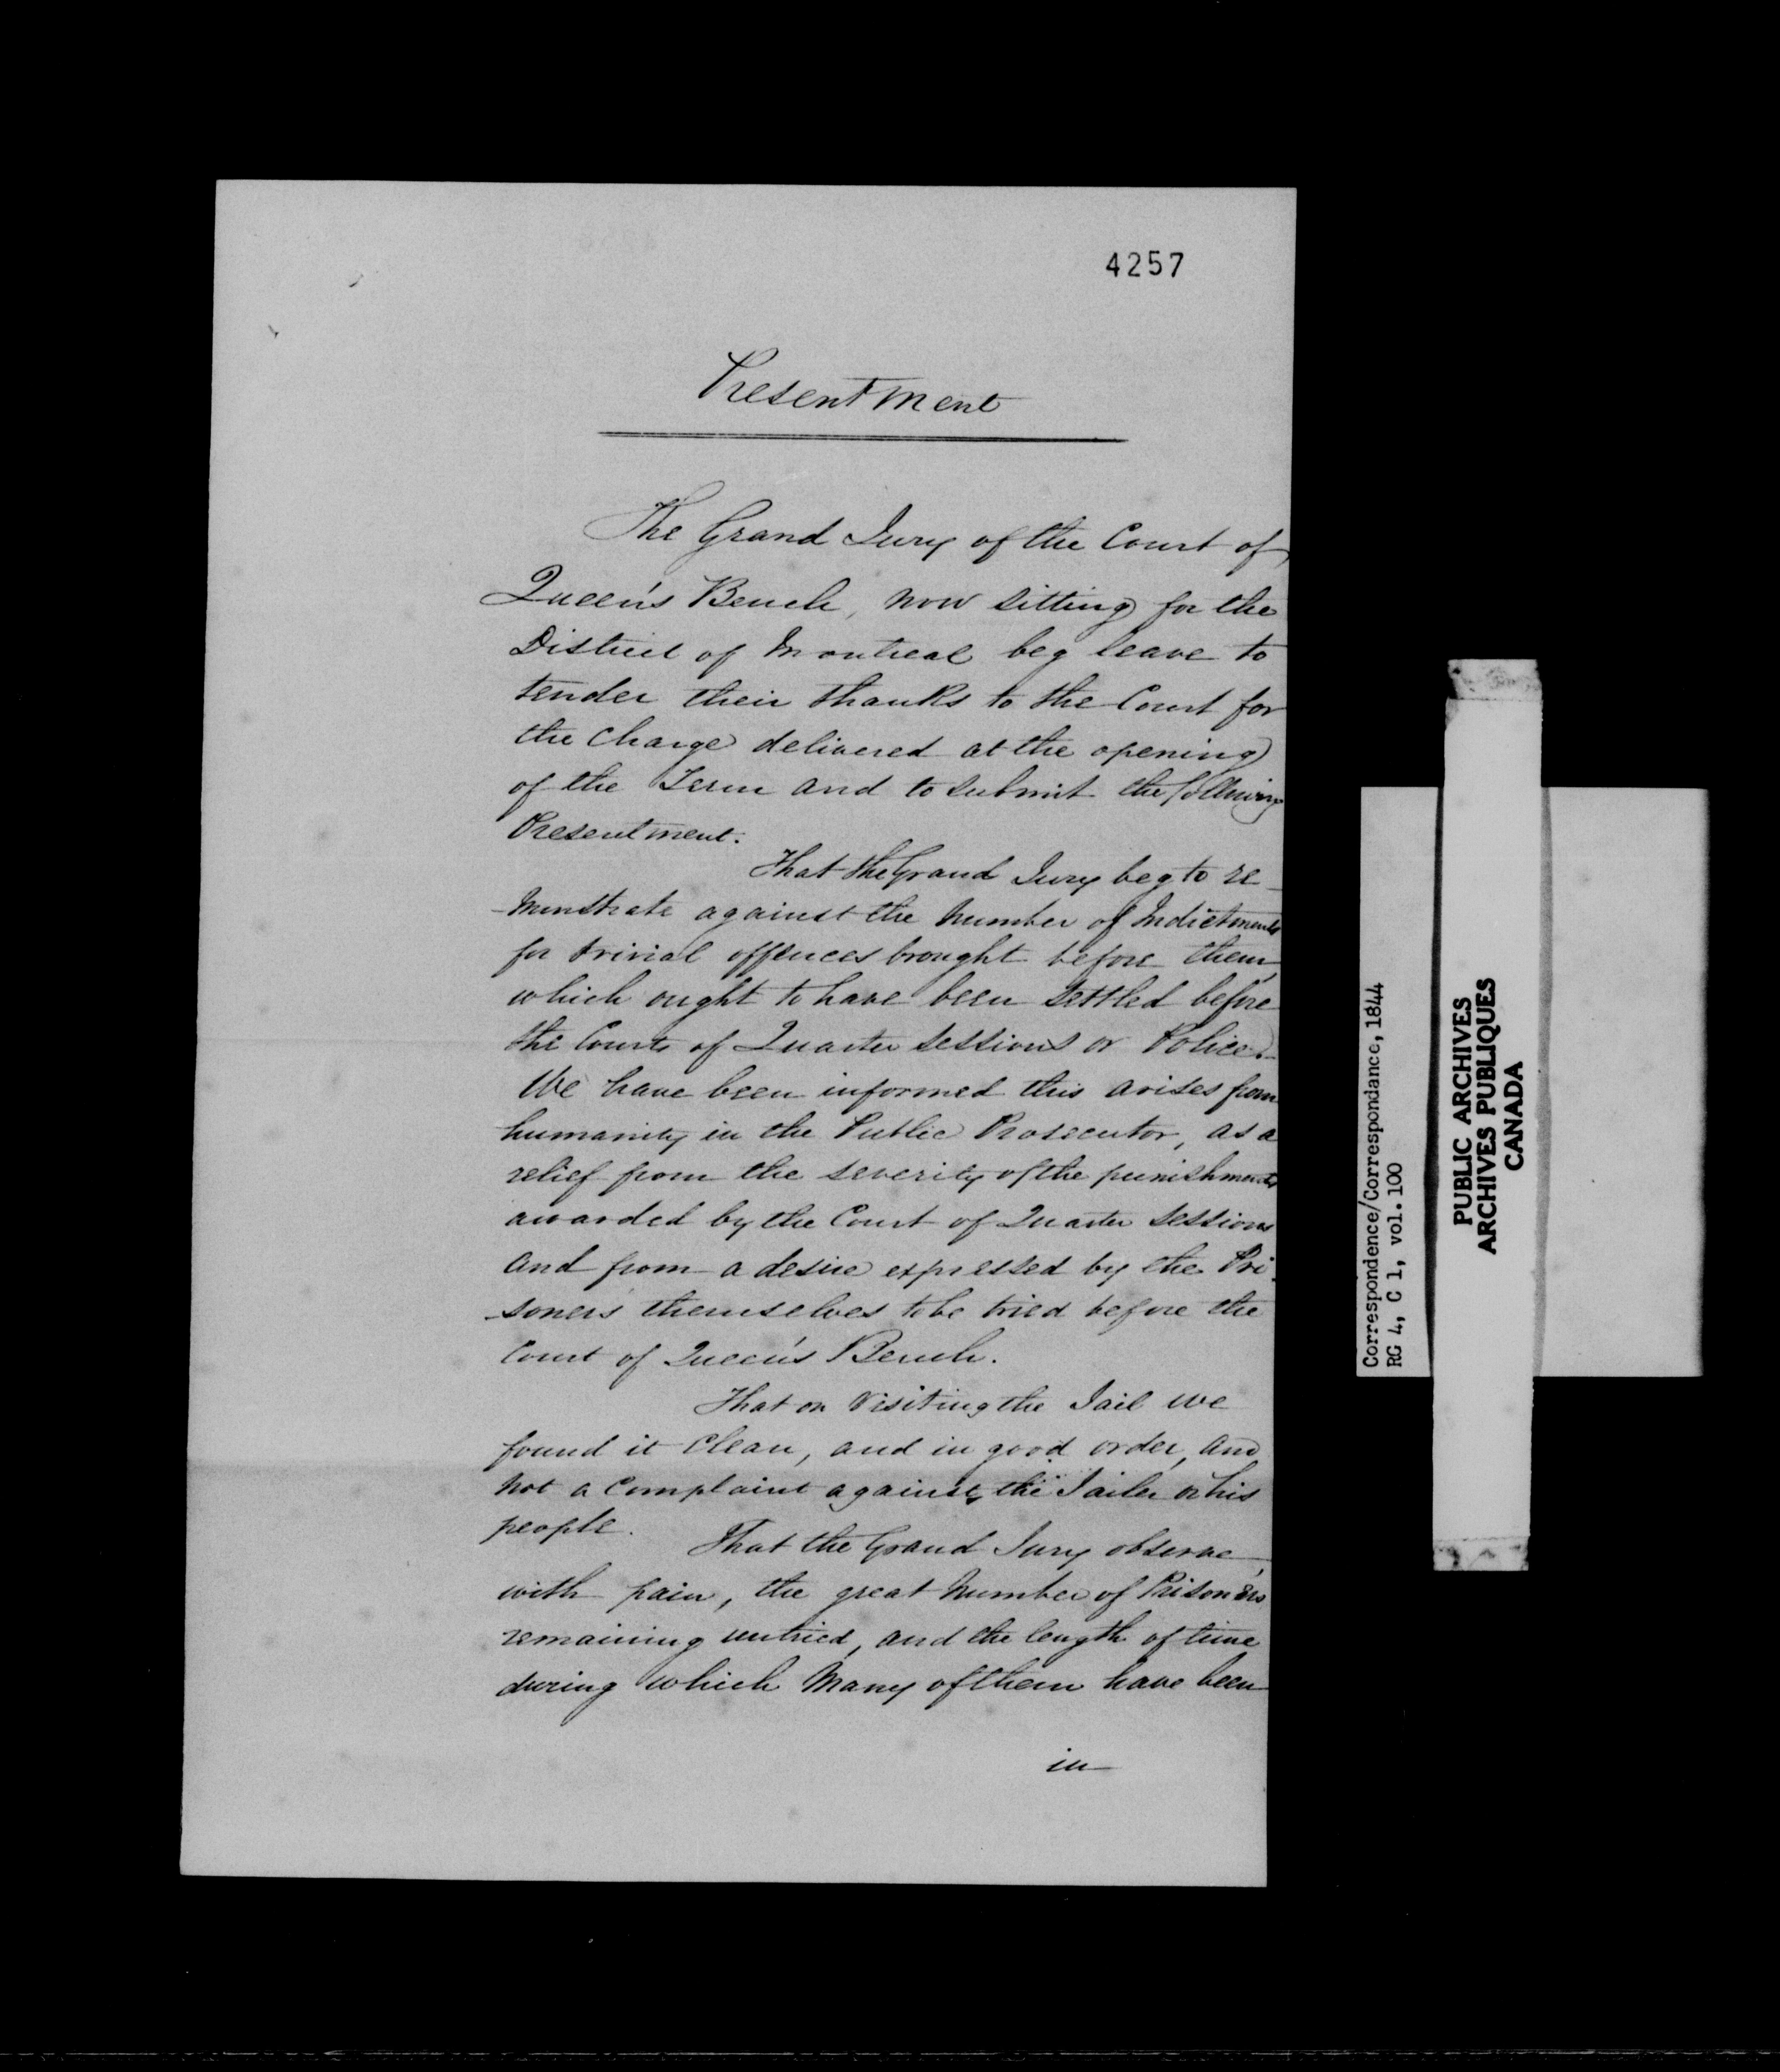 4257
Presentment
The Grand Jury of the Court of
Queen's Bench, now sitting for the
District of Montreal beg leave to
tender their thanks to the Court for
the Charge delivered at the opening
of the Term and to submit the following
Presentment.
That the Grand Jury beg to re-
-monstrate against the number of Indictments
for trivial offences brought before them,
which ought to have been settled before
the Courts of Quarter Sessions or Police.
We have been informed this arises from
humanity in the Public Prosecutor, as a
relief from the severity of the punishments
awarded by the Court of Quarter Sessions
and from a desire expressed by the Pri-
-soners themselves to be tried before the
Court of Queen's Bench.
That on Visiting the Jail we
found it Clean, and in good order, and
not a Complaint against the Jailer or his
people.
That the Grand Jury observe
with pain, the great number of Prisoners
remaining untried, and the length of time
during which Many of them have been
in
Correspondence/Correspondance, 1844
RG 4, C 1, vol.100
PUBLIC ARCHIVES
ARCHIVES PUBLIQUES
CANADA